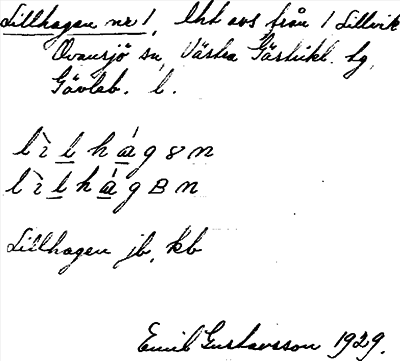 Lillhagen nr 1, lht avs från 1 Lillvik
Ovansjö sn, Västra Gästrikl. tg,
Gävleb. l.
lìlhág8n
lìlhágBn
Lillhagen jb, kb
Emil Gustavsson 1929.